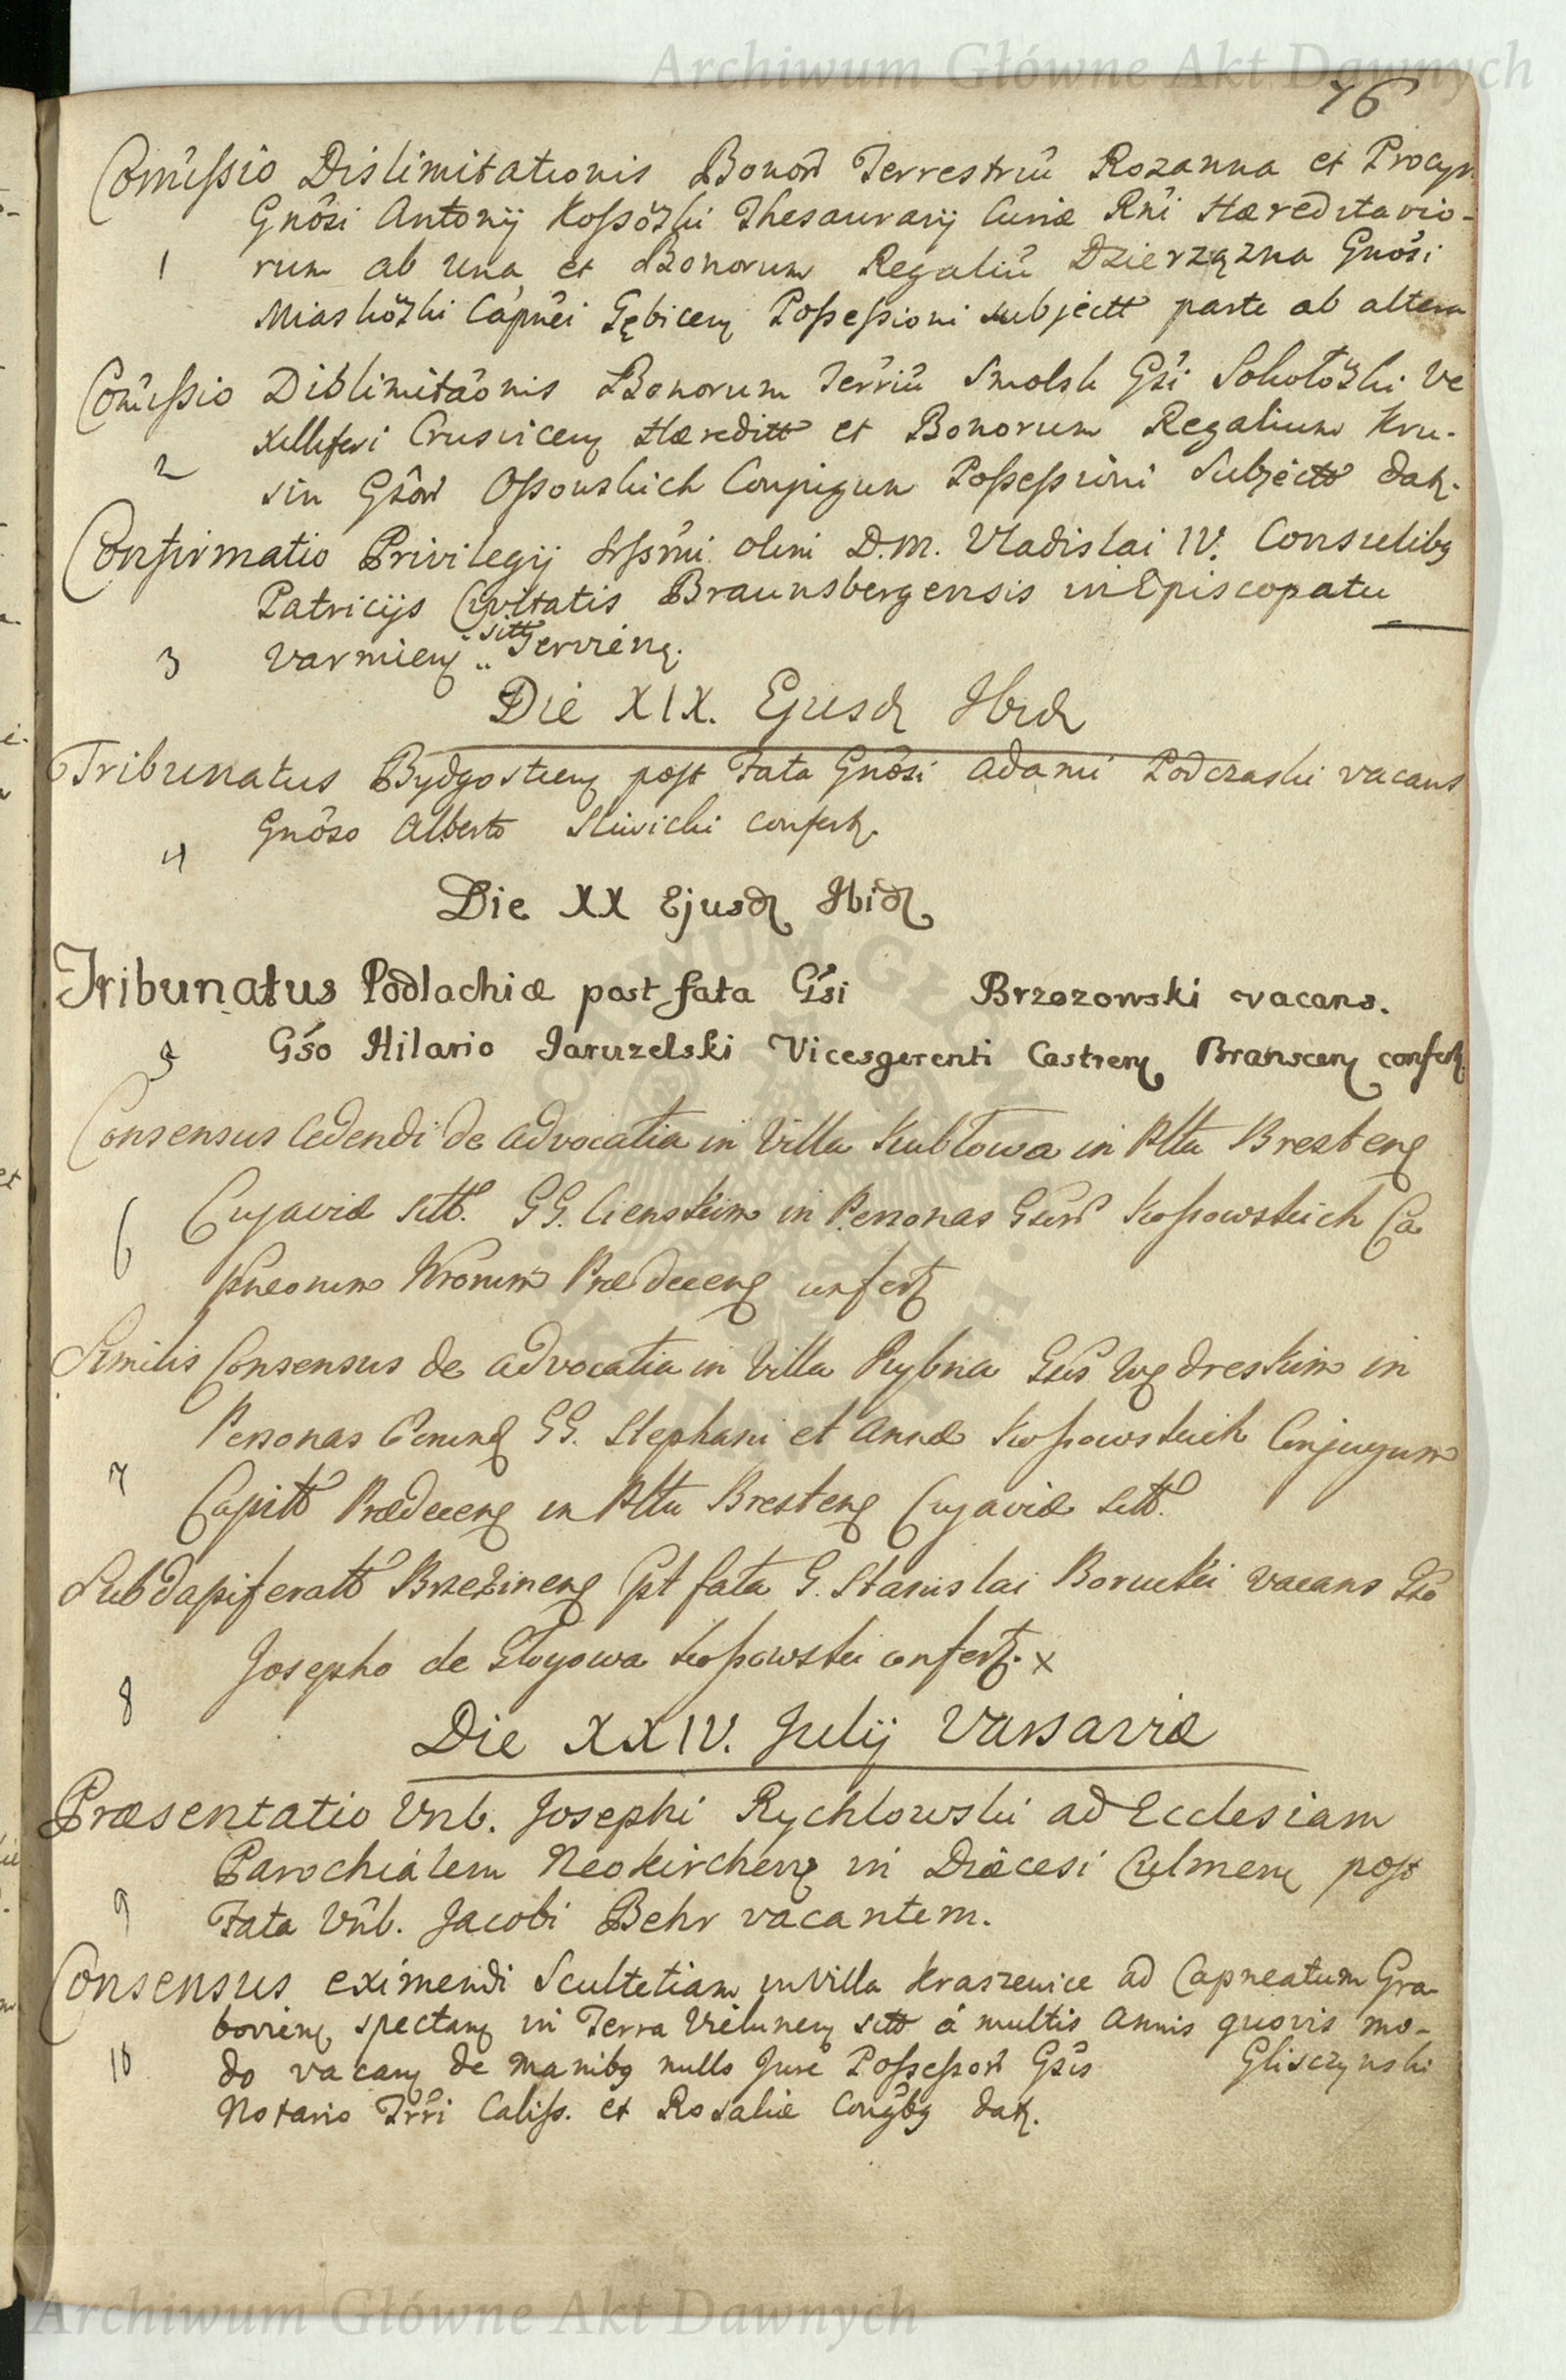 Archiwum Główne Akt Dawnych
76
Com̃issio Dislimitationis Bonor̃ Terrestriũ Rozanna et Procyn
Gnõsi Antonij Kossõzki Thesaurarij Curiæ Rñi Hæreditario-
1 rum ab una et Bonorum Regaliũ Dzierzązna Gnõsi
Miaskõzki Capnẽi Gębicen Possessioni subjectt parte ab altera
Com̃issio Dislimitaõnis Bonorum Terriũ Smolsk Gsi Sokołõzki Ve
xilliferi Crusvicen Hæreditt et Bonorum Regalium Kru-
2 sin Gsõr Ossouskich Conjugum Possessioni Subjectt dat.
Confirmatio Privilegij Srssmi olim D.M. Vladislai IV. Consulibq
Patricijs Civitatis Braunsbergensis in Episcopatu
3 Varmien sitt Servien.
Die XIX. Ejusd Ibid
Tribunatus Bydgostien post Fata Gnõsi Adami Podczaski vacans
Gnõso Alberto Sliwicki confert.
4
Die XX Ejusd Ibid
Tribunatus Podlachiæ post fata Gsi Brzozowski vacans.
5 Gso Hilario Jaruzelski Vicesgerenti Castren Branscen confert
Consensus Cedendi de advocatia in Villa Kubłowa in Pltu Bresten
Cujaviæ sitt. GG. Cienskim in Personas Gsor Kossowskich Ca
6 pneorum Nrorum Prædecen confert
Similis Consensus de advocatia in Villa Rybna Gsis in
Personas GG. Stephani et Annæ Kossowskich Conjugum
7 Capitt Prædecen in Pltu Bresten Cujaviæ sitt.
Subdapiferatt Brzezinen pt fata G. Stanislai Borucki vacans Gso
Josepho de Głogowa Kossowski confert. x
8
Die XXIV. Julij Varsaviæ
Præsentatio Vnb. Josephi Rychlowski ad Ecclesiam
Parochialem Neokirchen in Diæcesi Culmen post
9 Fata Vñb. Jacobi Behr vacantem.
Consensus eximendi Scultetiam in Villa Kraszewice ad Capneatum Gra-
bovien spectan in Terra Vielunen sitt á multis Annis quovis mo-
10 do vacan de manibq nullo Jure Possessor̃ Gsis Gliszczynski
Notario Trri Caliss. et Rosaliæ Conjgbq dat.
Archiwum Główne Akt Dawnych